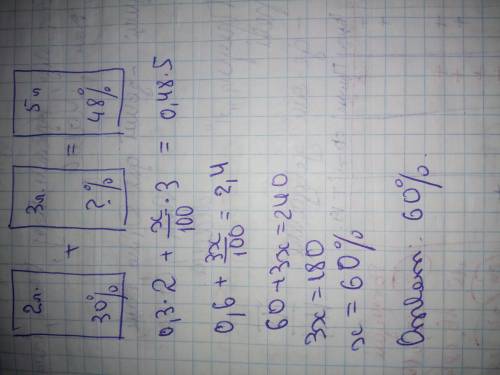 2л. + 3л. = 5л
30% ?% 48%
0,3·2 + x/100 · 3 = 0,48·5
0,6 + 3x/100 = 2,4
60 + 3x = 240
3x = 180
x = 60%
Ответ: 60%.